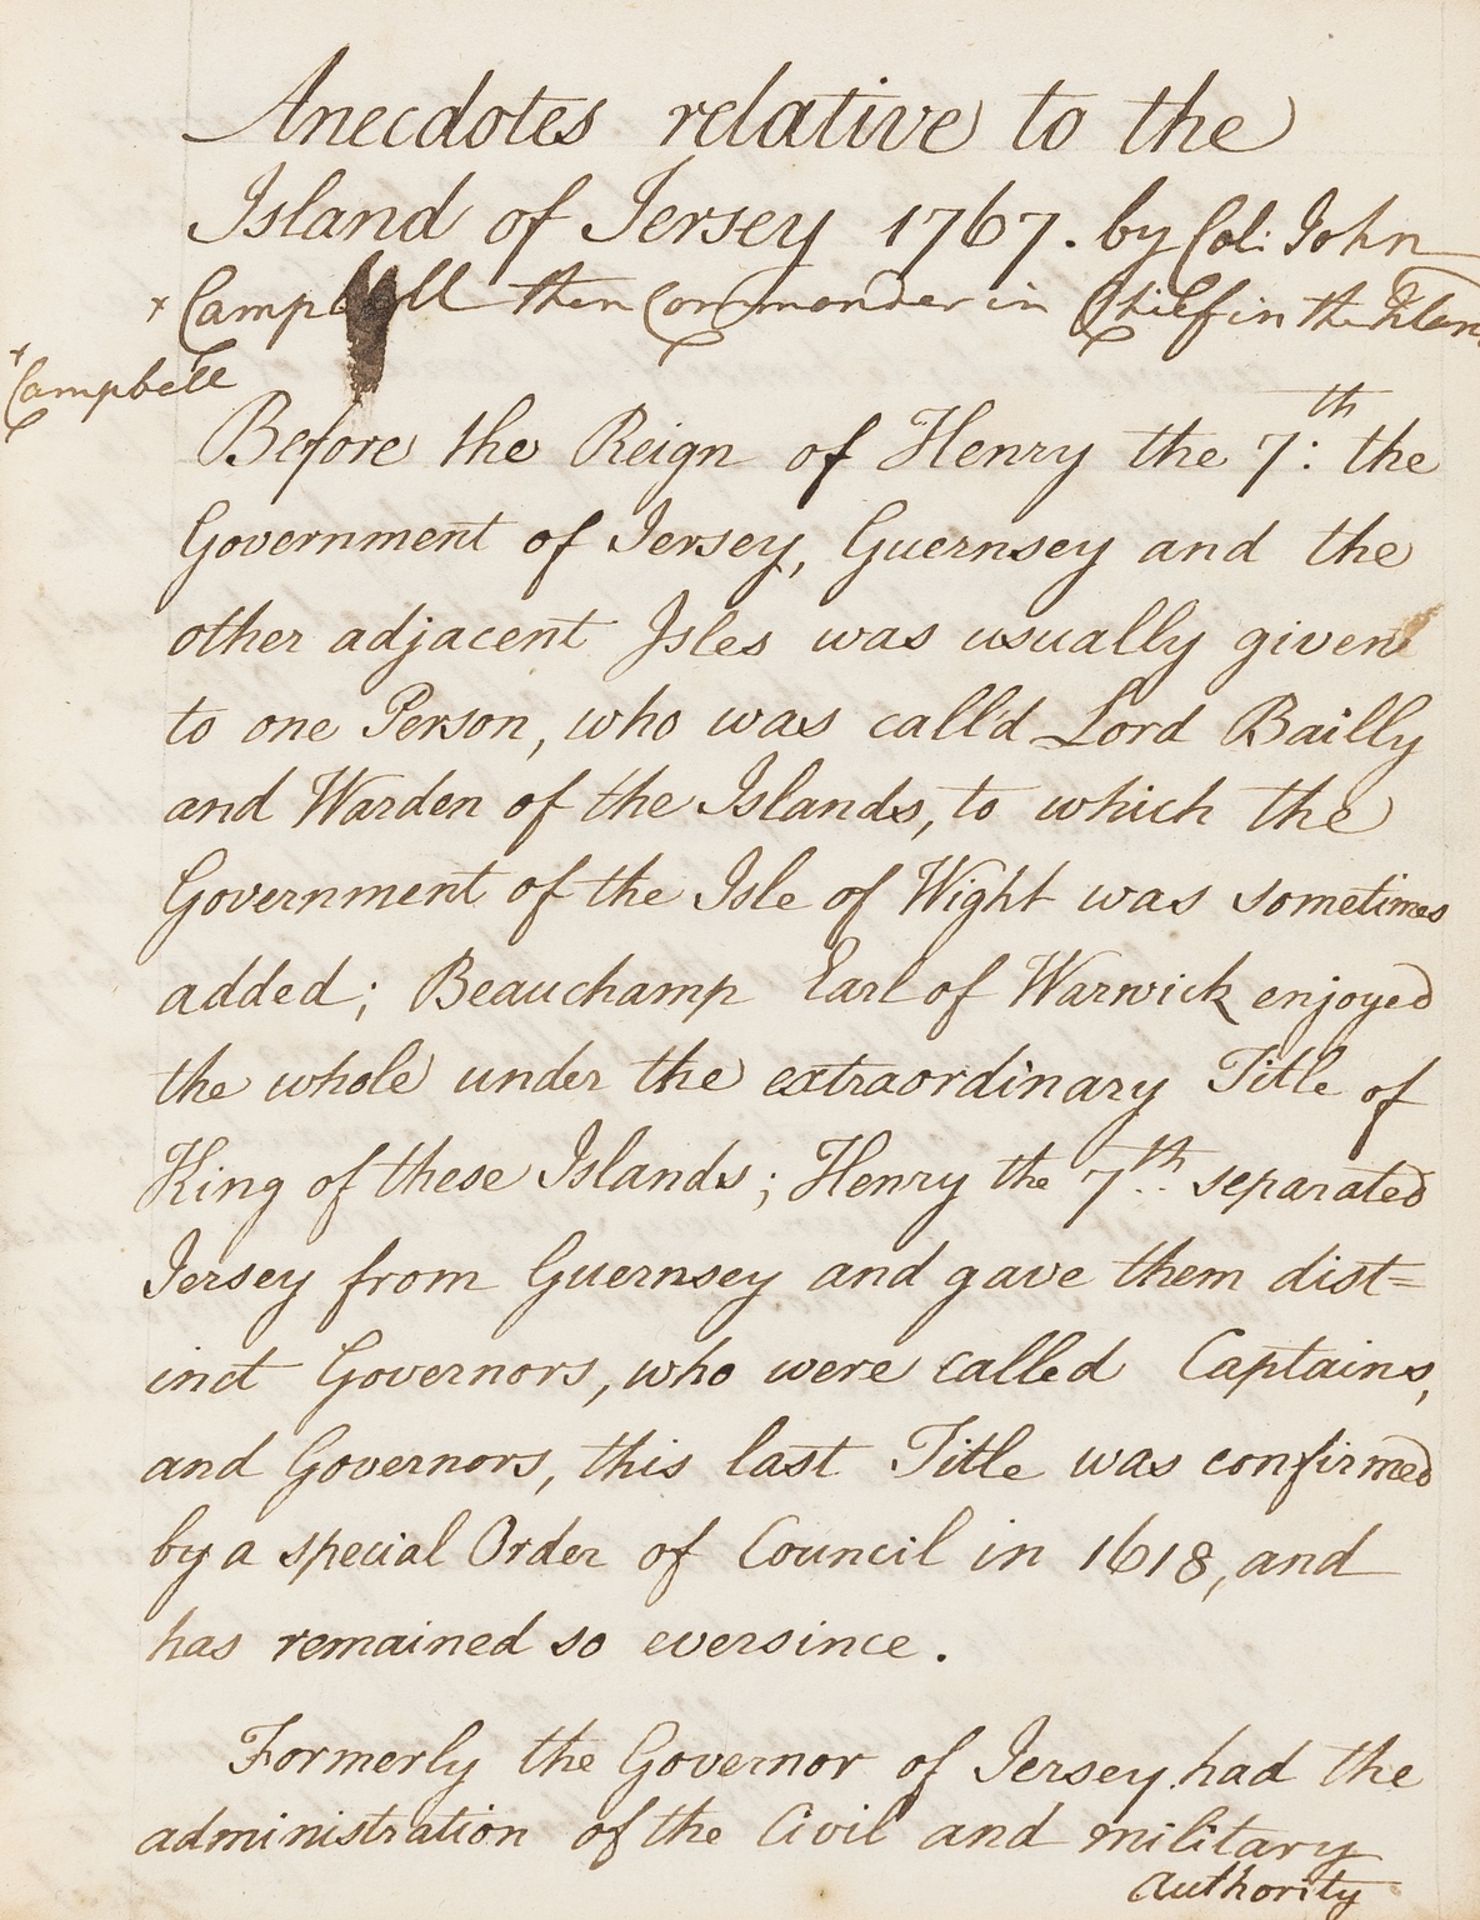 Anecdotes relative to the
Island of Jersey 1767. by Col: John
+ Campbell then Commander in Chief in the Islan
+
Campbell
Before the Reign of Henry the 7:th the
Government of Jersey, Guernsey and the
other adjacent Isles was usually given
to one Person, who was call'd Lord Bailly
and Warden of the Islands, to which the
Government of the Isle of Wight was sometimes
added; Beauchamp Earl of Warwick enjoyed
the whole under the extraordinary Title of
King of these Islands; Henry the 7th.. separated
Jersey from Guernsey and gave them dist=
inct Governors, who were called Captains,
and Governors, this last Title was confirmed
by a special Order of Council in 1618, and
has remained so eversince.
Formerly the Governor of Jersey had the
administration of the Civil and military
authority